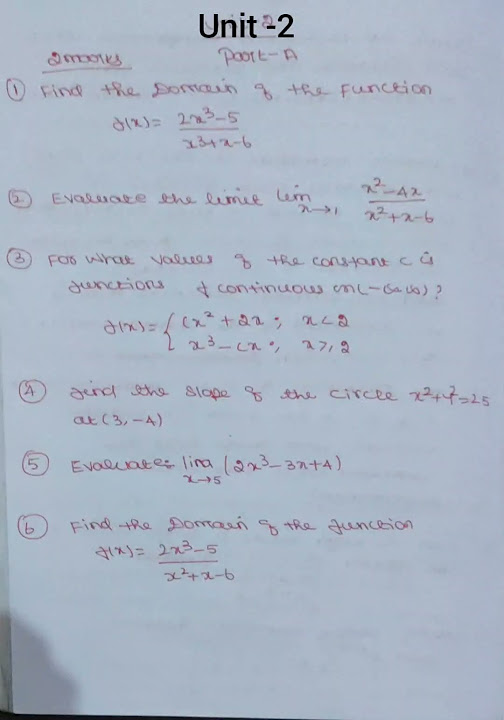 Unit -2
2marks Part-A
① Find the Domain of the Function
f(x) = 2x³-5 / x³+x-6
② Evaluate the limit lim x→1 x²-4x / x²+x-6
③ For what values of the constant c is
functions f continuous on(-∞,∞)?
f(x) = { cx² + 2x ; x < 2
x³ - cx ; x ≥ 2
④ find the slope of the circle x²+y²=25
at (3, -4)
⑤ Evaluate: lim x→5 (2x³-3x+4)
⑥ Find the Domain of the function
f(x) = 2x³-5 / x²+x-6